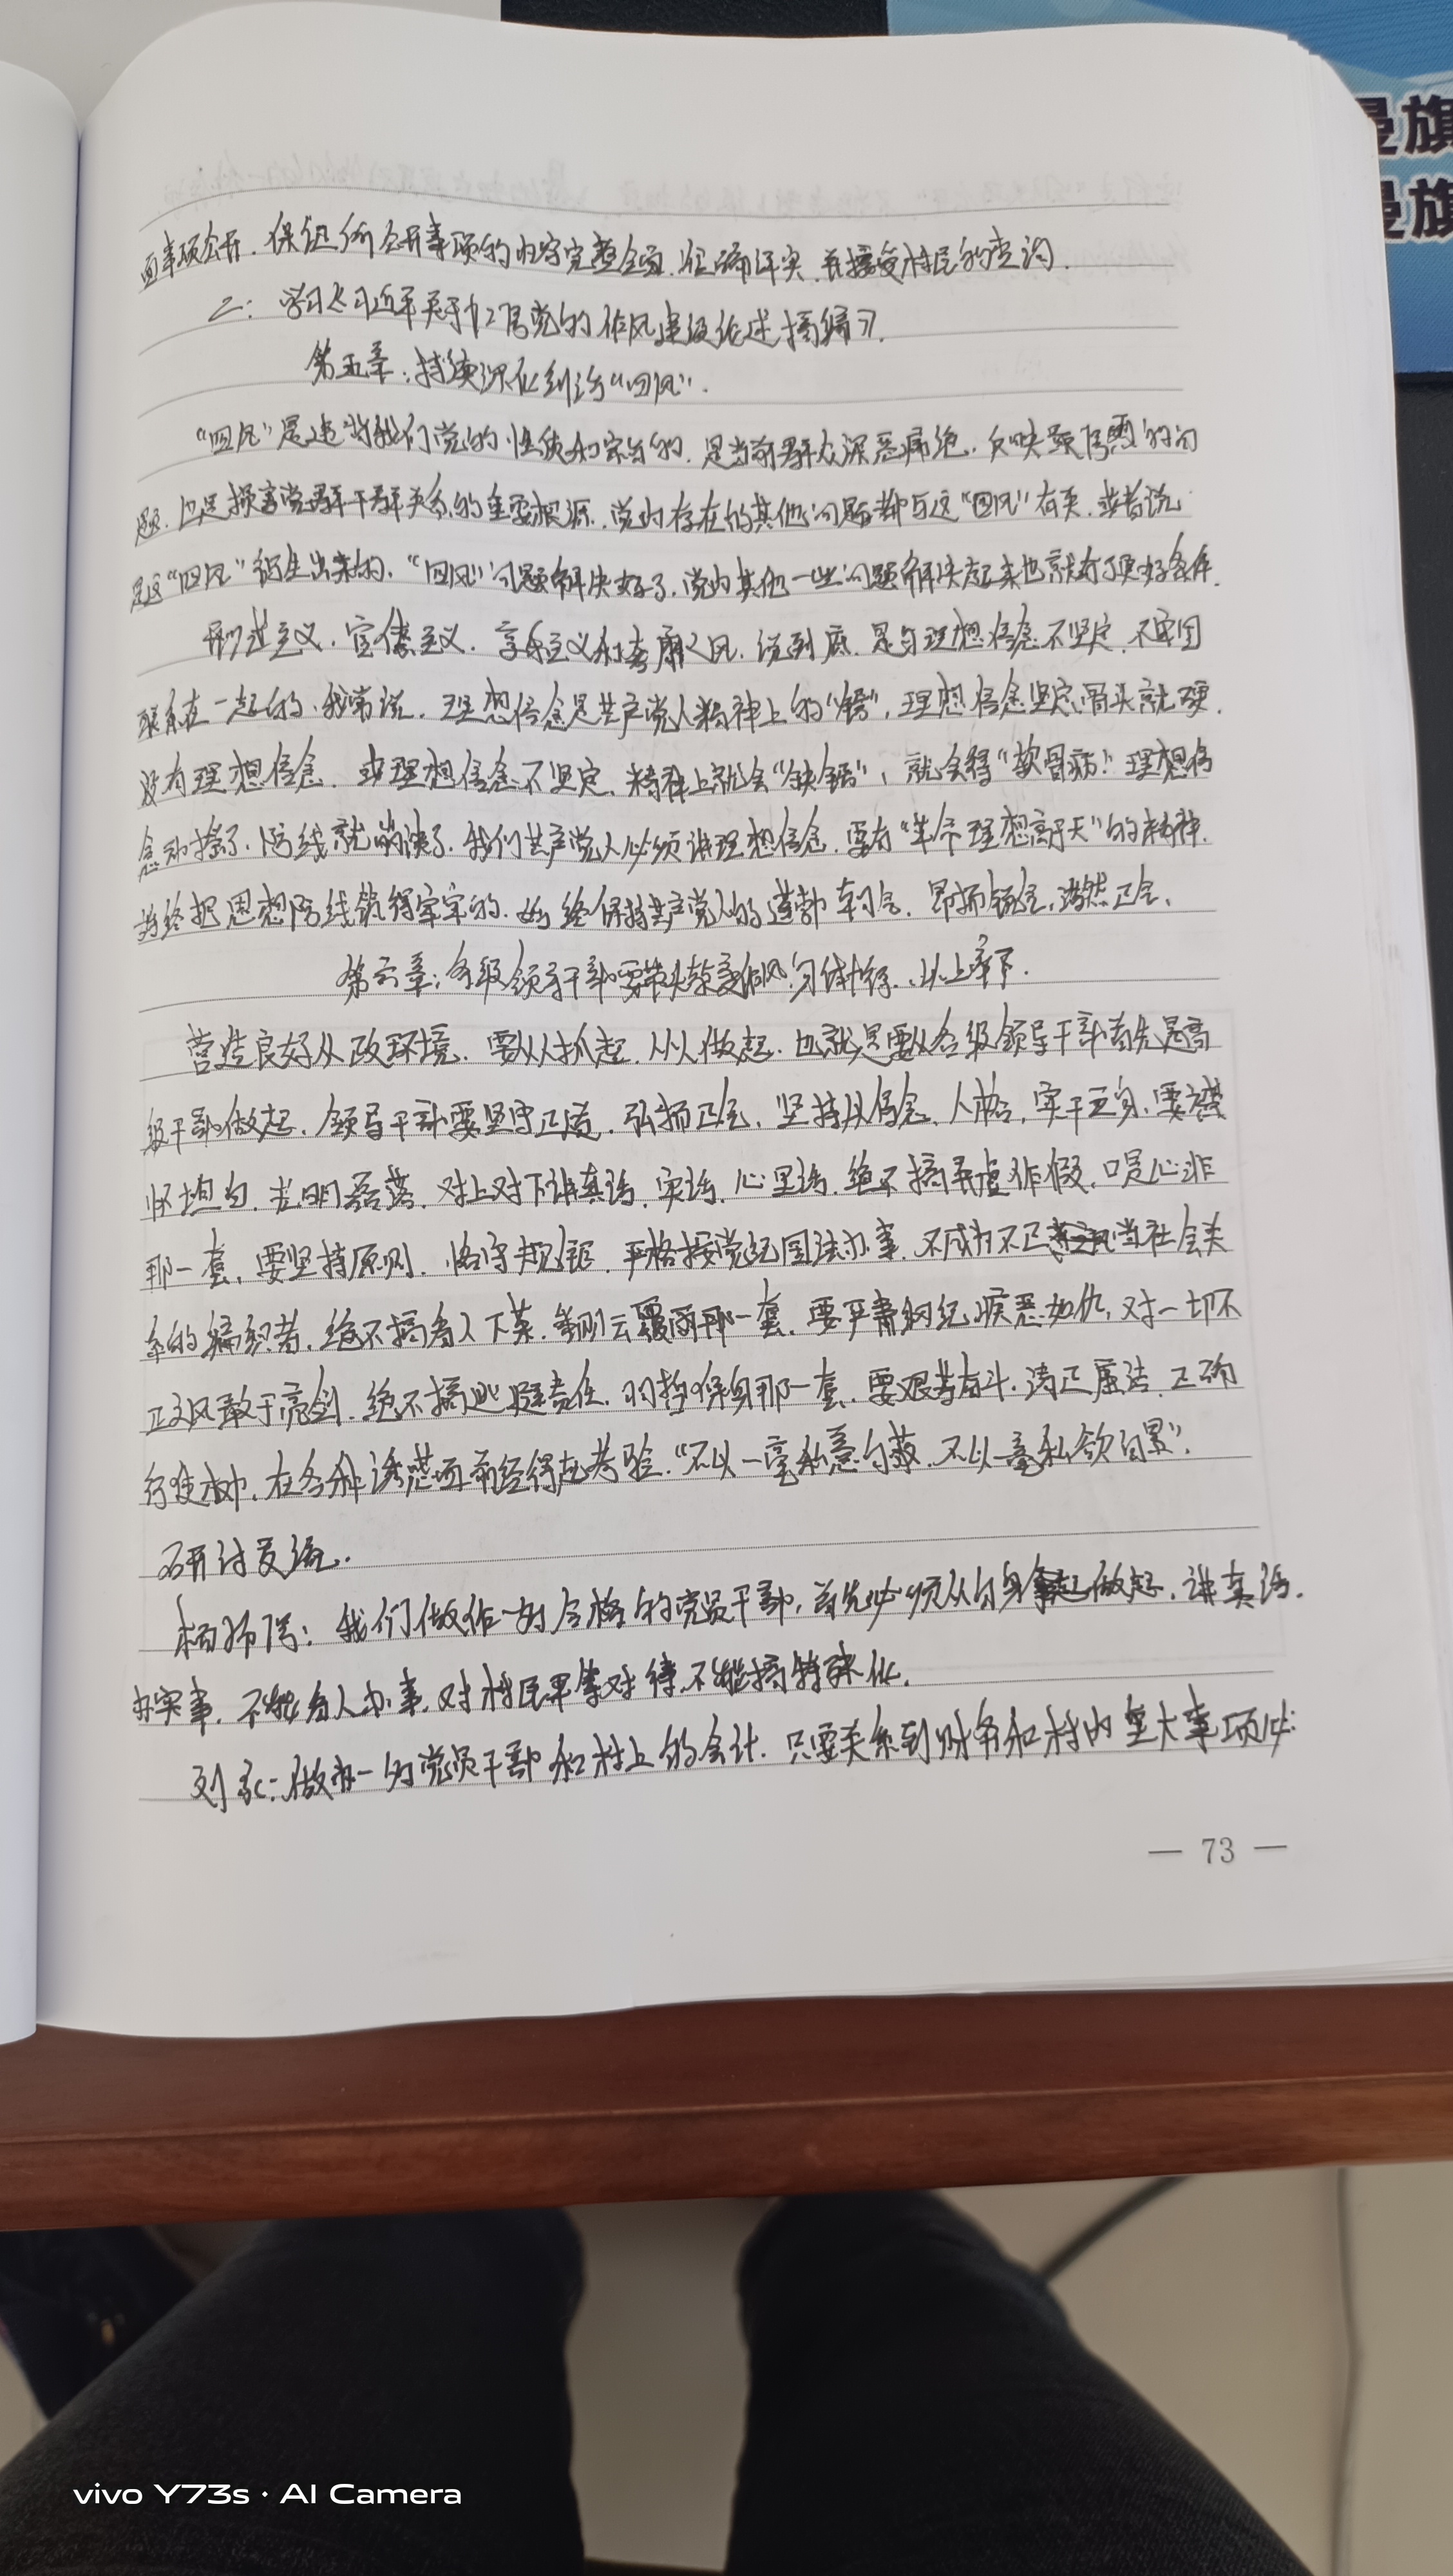 面事项公开.保证所公开事项的内容完整全面.准确详实.并接受村民的查询.
二:学习《习近平关于加强党的作风建设论述摘编》.
第五章:持续深化纠治“四风”.
“四风”是违背我们党的性质和宗旨的.是当前群众深恶痛绝.反映最强烈的问
题.也是损害党群干群关系的重要根源.党内存在的其他问题都与这“四风”有关.或者说
是这“四风”衍生出来的.“四风”问题解决好了.党内其他一些问题解决起来也就有了更好条件.
形式主义.官僚主义.享乐主义和奢靡之风.说到底.是与理想信念不坚定.不牢固
联系在一起的.我常说.理想信念是共产党人精神上的“钙”.理想信念坚定.骨头就硬.
没有理想信念.或理想信念不坚定.精神上就会“缺钙”,就会得“软骨病”.理想信
念动摇了.防线就崩溃了.我们共产党人必须讲理想信念.要有“革命理想高于天”的精神.
始终把思想防线筑得牢牢的.始终保持共产党人的蓬勃朝气.昂扬锐气.浩然正气.
第六章:各级领导干部要带头转变作风.身体力行.以上率下.
营造良好从政环境.要从人抓起.从人做起.也就是要从各级领导干部首先是高
级干部做起.领导干部要坚守正道.弘扬正气.坚持以信念.人格.实干立身.要襟
怀坦白.光明磊落.对上对下讲真话.实话.心里话.绝不搞弄虚作假.口是心非
那一套.要坚持原则.恪守规矩.严格按党纪国法办事.不成为不正当社会关
系的编织者.绝不搞看人下菜.翻云覆雨那一套.要严肃纲纪.疾恶如仇.对一切不
正之风敢于亮剑.绝不搞逃避责任.明哲保身那一套.要艰苦奋斗.清正廉洁.正确
行使权力.在各种诱惑面前经得起考验.“不以一毫私意自蔽.不以一毫私欲自累”.
研讨交流.
我们做作一名合格的党员干部,首先必须从自身做起.讲真话.
办实事.不能看人办事.对村民平等对待.不能搞特殊化.
刘 :做为一名党员干部和村上的会计.只要关系到财务和村内重大事项
— 73 —
曼旗
曼旗
vivo Y73s · AI Camera